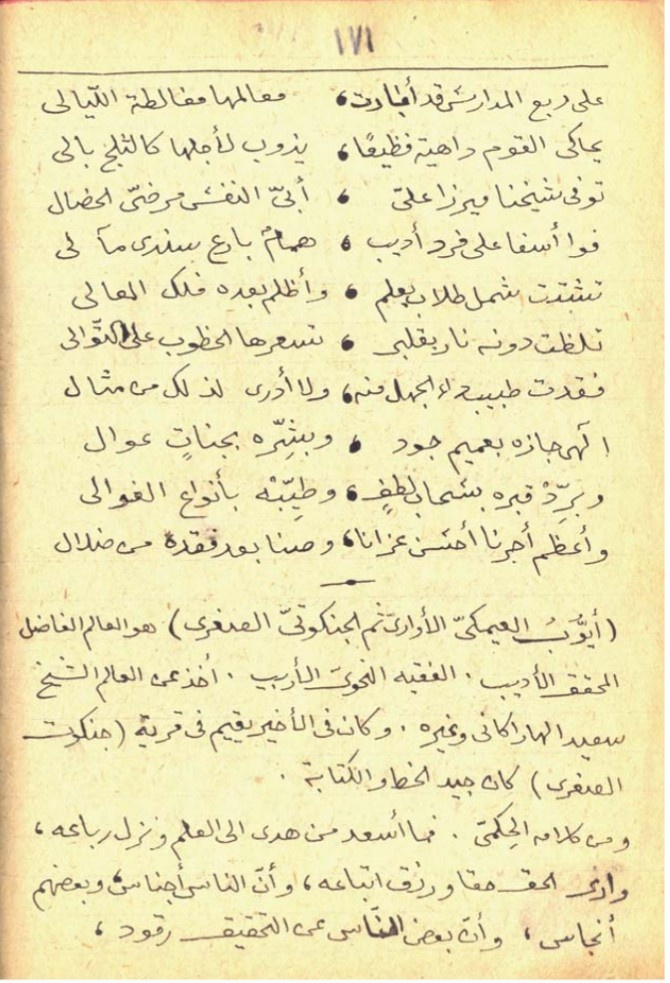 ١٧١
على ربع المدارس قد أبادت، معالمها مغالطة الليالى
يحاكى القوم داهية فظيعًا، يذوب لأجلها كالثلج بالى
توفى شيخنا ميرزا علىّ ، أبىّ النفس مرضىّ الخصال
فوا أسفا على فرد أديب ، همامٌ بارع سندى مآ لى
تشتتت شمل طلاب بعلم ، وأظلم بعده فلك المعالى
تلظت دونه نار بقلبى ، تسعرها الخطوب على التّوالى
فقدت طبيب داء الجهل منه، ولا أدرى لذلك من مثال
الٓهى جازه بعميم جود ، وبشِّره بجناتٍ عوال
وبرِّدْ قبره بسحاب لطفٍ، وطيِّبْه بأنواع الغوالى
وأعظم أجرنا أحسن عزانا، وصنا بعد فقده من ضلال
(أيّوبُ العيمكىّ الأوارىّ ثم الجنكوتىّ الصغرى) هو العالم الفاضل
المحقق الأديب . الفقيه النحوىّ الأريب . أخذ عن العالم الشيخ
سعيد الهاراكانى وغيره . وكان فى الأخير يقيم فى قرية (جنكوت
الصغرى) كان جيد الخط والكتابة .
ومن كلامه الحِكمىّ . فما أسعد من هدى الى العلم ونزل رباعه ،
وأرى الحق حقا ورزق اتباعه ، وأنّ الناس أجناس، وبعضهم
أنجاس ، وأن بعض النّاس عن التحقيق رقود ،